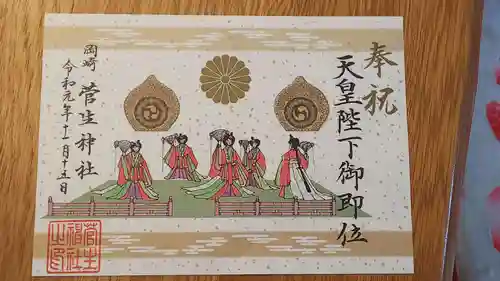 奉祝
天皇陛下御即位
岡崎
菅生神社
令和元年十一月十五日
菅生
神社
之印